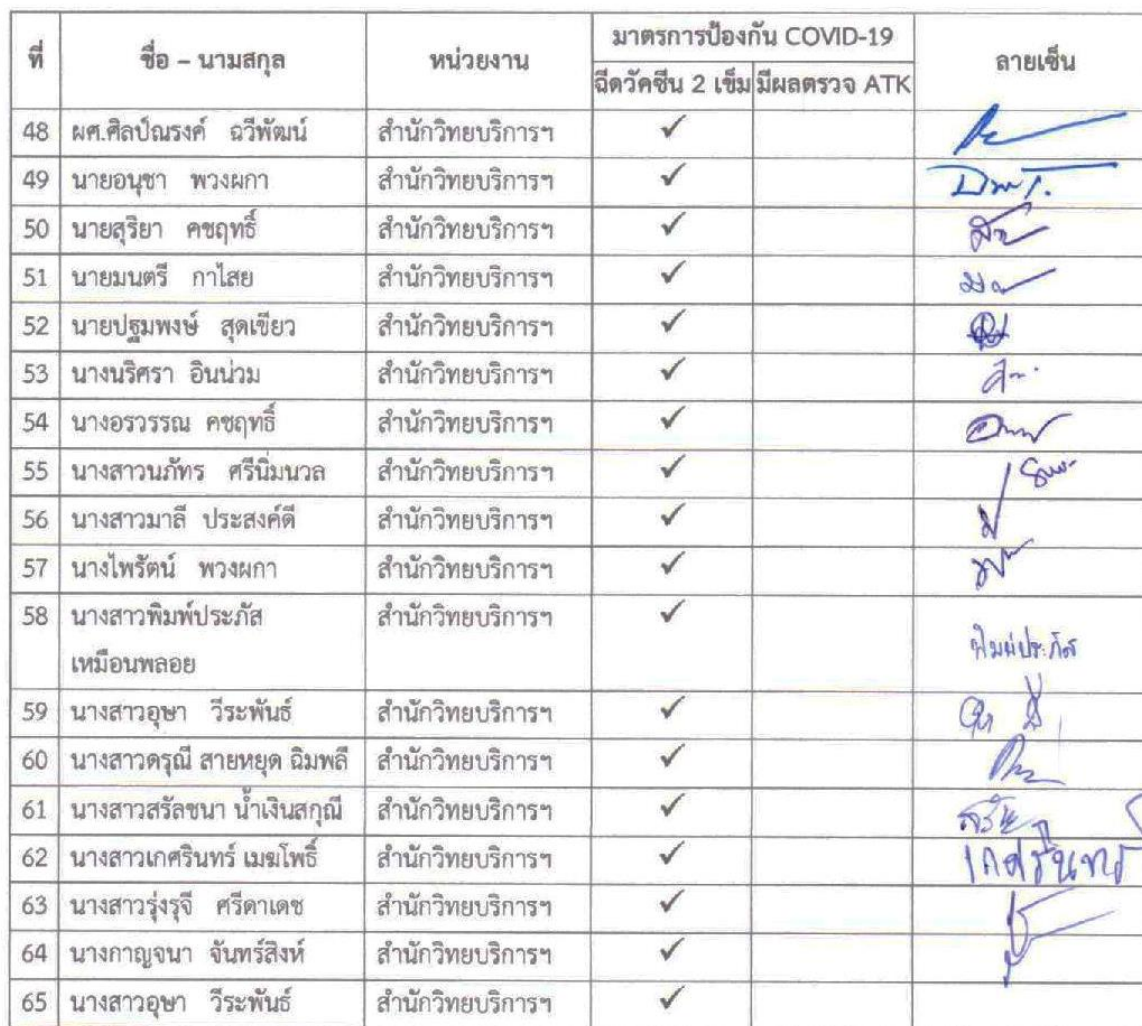 ที่ ชื่อ – นามสกุล หน่วยงาน มาตรการป้องกัน COVID-19 ลายเซ็น
ฉีดวัคซีน 2 เข็ม มีผลตรวจ ATK
48 ผศ.ศิลป์ณรงค์ ฉวีพัฒน์ สำนักวิทยบริการฯ ✓
49 นายอนุชา พวงผกา สำนักวิทยบริการฯ ✓
50 นายสุริยา คชฤทธิ์ สำนักวิทยบริการฯ ✓
51 นายมนตรี กาไสย สำนักวิทยบริการฯ ✓
52 นายปฐมพงษ์ สุดเขียว สำนักวิทยบริการฯ ✓
53 นางนริศรา อินน่วม สำนักวิทยบริการฯ ✓
54 นางอรวรรณ คชฤทธิ์ สำนักวิทยบริการฯ ✓
55 นางสาวนภัทร ศรีนิ่มนวล สำนักวิทยบริการฯ ✓
56 นางสาวมาลี ประสงค์ดี สำนักวิทยบริการฯ ✓
57 นางไพรัตน์ พวงผกา สำนักวิทยบริการฯ ✓
58 นางสาวพิมพ์ประภัส สำนักวิทยบริการฯ ✓
เหมือนพลอย พิมพ์ประภัส
59 นางสาวอุษา วีระพันธ์ สำนักวิทยบริการฯ ✓
60 นางสาวดรุณี สายหยุด ฉิมพลี สำนักวิทยบริการฯ ✓
61 นางสาวสรัลชนา น้ำเงินสกุณี สำนักวิทยบริการฯ ✓
62 นางสาวเกศรินทร์ เมฆโพธิ์ สำนักวิทยบริการฯ ✓ เกศรินทร์
63 นางสาวรุ่งรุจี ศรีดาเดช สำนักวิทยบริการฯ ✓
64 นางกาญจนา จันทร์สิงห์ สำนักวิทยบริการฯ ✓
65 นางสาวอุษา วีระพันธ์ สำนักวิทยบริการฯ ✓